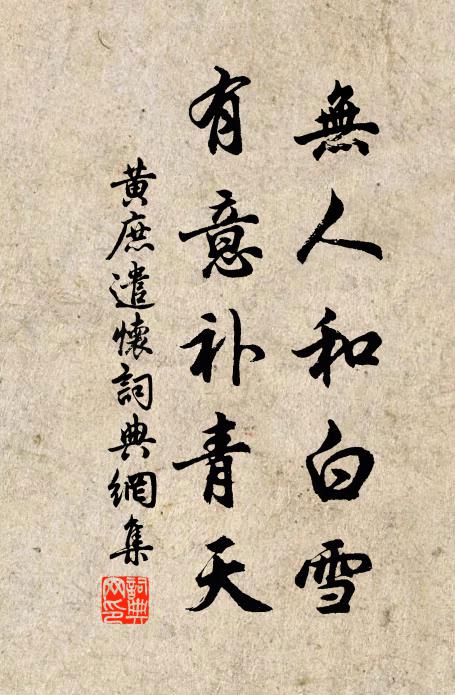 無人和白雪
有意补青天
黄庶遣懷詞典網集
詞典网印